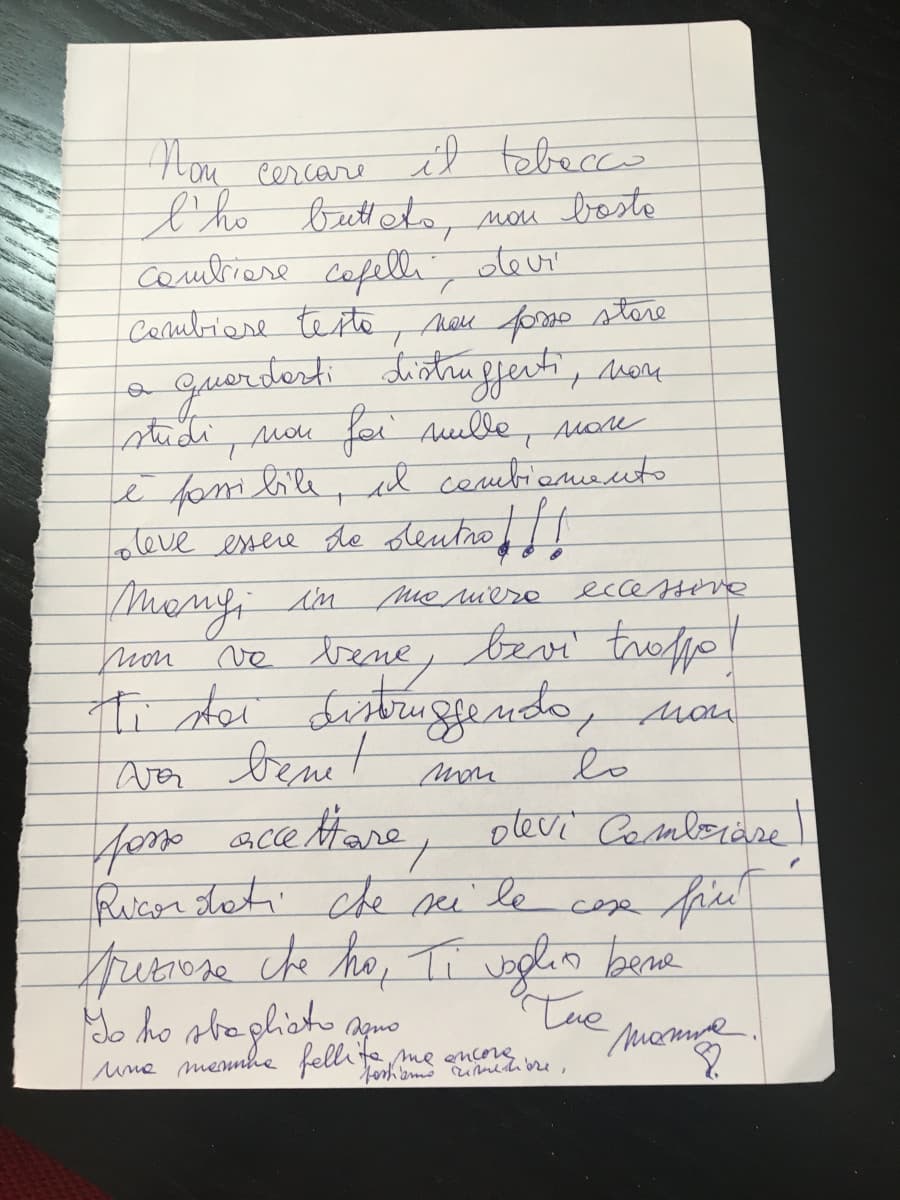 Non cercare il tabacco
l'ho buttato, non basta
cambiare capelli, devi
cambiare testa, non posso stare
a guardarti distruggerti, non
studi, non fai nulla, non
è possibile, il cambiamento
deve essere da dentro!!!
Mangi in maniera eccessiva
non va bene, bevi troppo!
Ti stai distruggendo, non
va bene! non lo
posso accettare, devi Cambiare!
Ricordati che sei la cosa più
preziosa che ho, Ti voglio bene
Tua mamma.
Io ho sbagliato sono
una mamma fallita, ma ancora
possiamo rimediare.